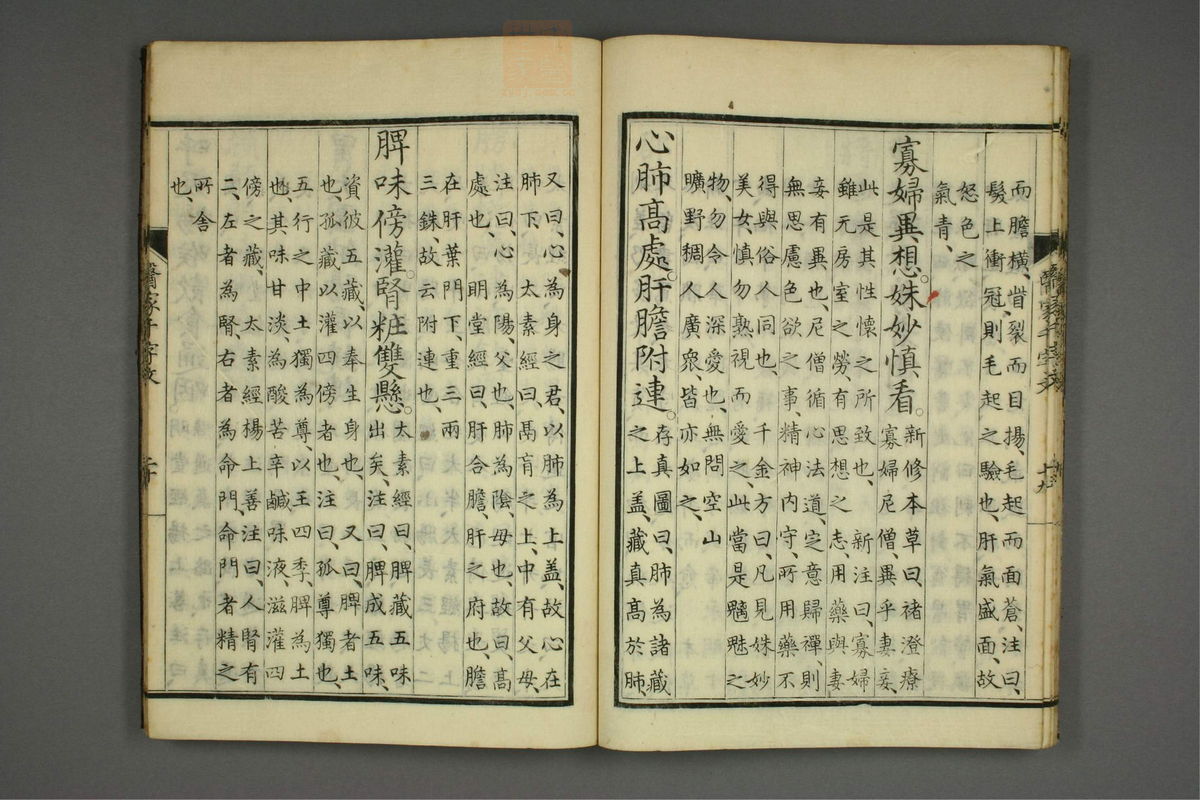 而膽橫、眥裂而目揚、毛起而面蒼、注曰、
髮上衝冠、則毛起之驗也、肝氣盛面、故
怒色之
氣青、
寡婦異想。姝妙慎看。新修本草曰、褚澄療
寡婦尼僧、異乎妻妾、
此是其性懷之所致也、新注曰、寡婦
雖无房室之勞、有思想之志、用藥與妻
妾有異也、尼僧循心法道、定意歸禪、則
無思慮色欲之事、精神内守、所用藥不
得與俗人同也、千金方曰、凡見姝妙
美女、慎勿熟視而愛之、此當是魑魅之
物、勿令人深愛也、無問空山
曠野稠人廣衆、皆亦如之、
心肺高處。肝膽附連。存真圖曰、肺為諸藏
之上盖、藏真高於肺
醫家千字文
十九
又曰、心為身之君、以肺為上盖、故心在
肺下、太素經曰、鬲肓之上、中有父母
注曰、心為陽、父也、肺為陰、母也、故曰、高
處也、明堂經曰、肝合膽、肝之府也、膽
在肝葉門下、重三兩
三銖、故云附連也、
脾味傍灌。腎粧雙懸。太素經曰、脾藏五味
出矣、注曰、脾成五味、
資彼五藏、以奉生身也、又曰、脾者土
也、孤藏以灌四傍者也、注曰、孤尊獨也、
五行之中土獨為尊、以王四季、脾為土
也、其味甘淡、為酸苦辛鹹味液、滋灌四
傍之藏、太素經楊上善注曰、人腎有
二、左者為腎、右者為命門、命門者精之
所舍
也、
醫家千字文
二十